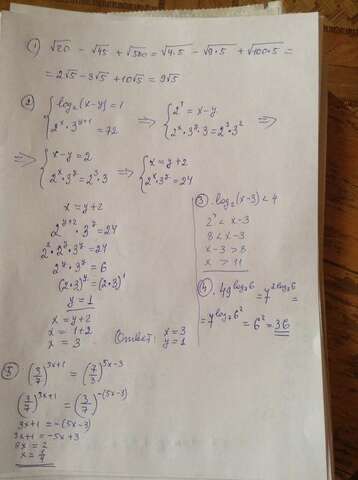 ① √20 - √45 + √500 = √4·5 - √9·5 + √100·5 =
= 2√5 - 3√5 + 10√5 = 9√5
② { log₂(x-y) = 1 ⇒ { 2¹ = x-y ⇒
2ˣ·3ʸ⁺¹ = 72 2ˣ·3ʸ·3 = 2³·3²
⇒ { x-y = 2 ⇒ { x = y+2
2ˣ·3ʸ = 2³·3 2ˣ·3ʸ = 24
x = y+2
2ʸ⁺²·3ʸ = 24
2²·2ʸ·3ʸ = 24
2ʸ·3ʸ = 6
(2·3)ʸ = (2·3)¹
y = 1
x = y+2
x = 1+2
x = 3
Ответ: x=3
y=1
③ log₂(x-3) < 4
2 < x-3
8 < x-3
x-3 > 8
x > 11
④ 49^(log₇6) = 7^(2log₇6) =
= 7^(log₇6²) = 6² = 36
⑤ (3/7)³ˣ⁺¹ = (7/3)⁵ˣ⁻³
(3/7)³ˣ⁺¹ = (3/7)⁻⁽⁵ˣ⁻³⁾
3x+1 = -(5x-3)
3x+1 = -5x+3
8x = 2